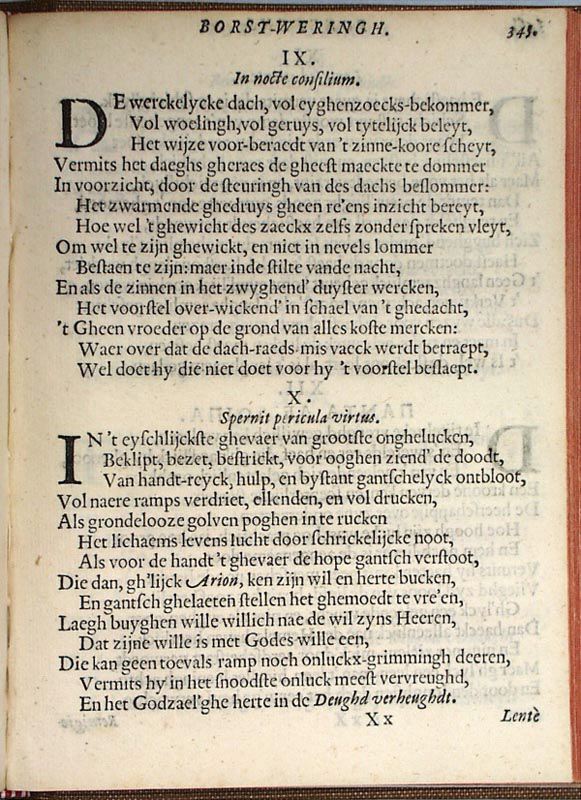 BORST-WERINGH. 345.
IX.
In nocte consilium.
DE werckelycke dach, vol eyghenzoecks-bekommer,
Vol woelingh, vol geruys, vol tytelijck beleyt,
Het wijze voor-beraedt van 't zinne-koore scheyt,
Vermits het daeghs gheraes de gheest maeckte te dommer
In voorzicht, door de steuringh van des dachs beslommer:
Het zwarmende ghedruys gheen re'ens inzicht bereyt,
Hoe wel 't ghewicht des zaeckx zelfs zonder spreken vleyt,
Om wel te zijn ghewickt, en niet in nevels lommer
Bestaen te zijn: maer inde stilte vande nacht,
En als de zinnen in het zwyghend' duyster wercken,
Het voorstel over-wickend' in schael van 't ghedacht,
't Gheen vroeder op de grond van alles koste mercken:
Waer over dat de dach-raeds-mis vaeck werdt betraept,
Wel doet hy die niet doet voor hy 't voorstel beslaept.
X.
Spernit pericula virtus.
IN 't eyschlijckste ghevaer van grootste onghelucken,
Beklipt, bezet, bestrickt, voor ooghen ziend' de doodt,
Van handt-reyck, hulp, en bystant gantschelyck ontbloot,
Vol naere ramps verdriet, ellenden, en vol drucken,
Als grondelooze golven poghen in te rucken
Het lichaems levens lucht door schrickelijcke noot,
Als voor de handt 't ghevaer de hope gantsch verstoot,
Die dan, gh'lijck Arion, ken zijn wil en herte bucken,
En gantsch ghelaeten stellen het ghemoedt te vre'en,
Laegh buyghen wille willich nae de wil zyns Heeren,
Dat zijne wille is met Godes wille een,
Die kan geen toevals ramp noch onluckx-grimmingh deeren,
Vermits hy in het snoodste onluck meest vervreughd,
En het Godzael'ghe herte in de Deughd verheughdt.
XxXx Lente